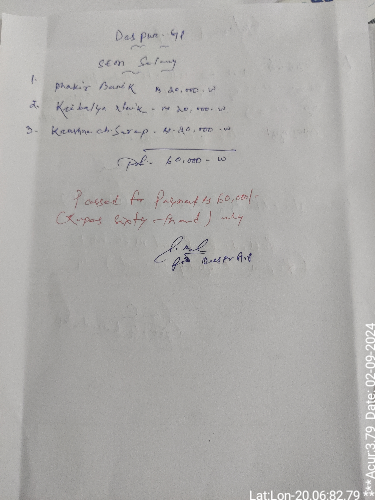 Daspur - GP
SEM Salary
1. Dhakir Barik ₨ 20,000-00
2. Kaibalya Naik - ₨ 20,000-00
3. Krushna ch. - ₨ 20,000-00
60,000-00
Passed for Payment ₨ 60,000/-
(Rupees Sixty thousand) only
Lat:Lon-20.06:82.79
***Acur:3.79 Date: 02-09-2024